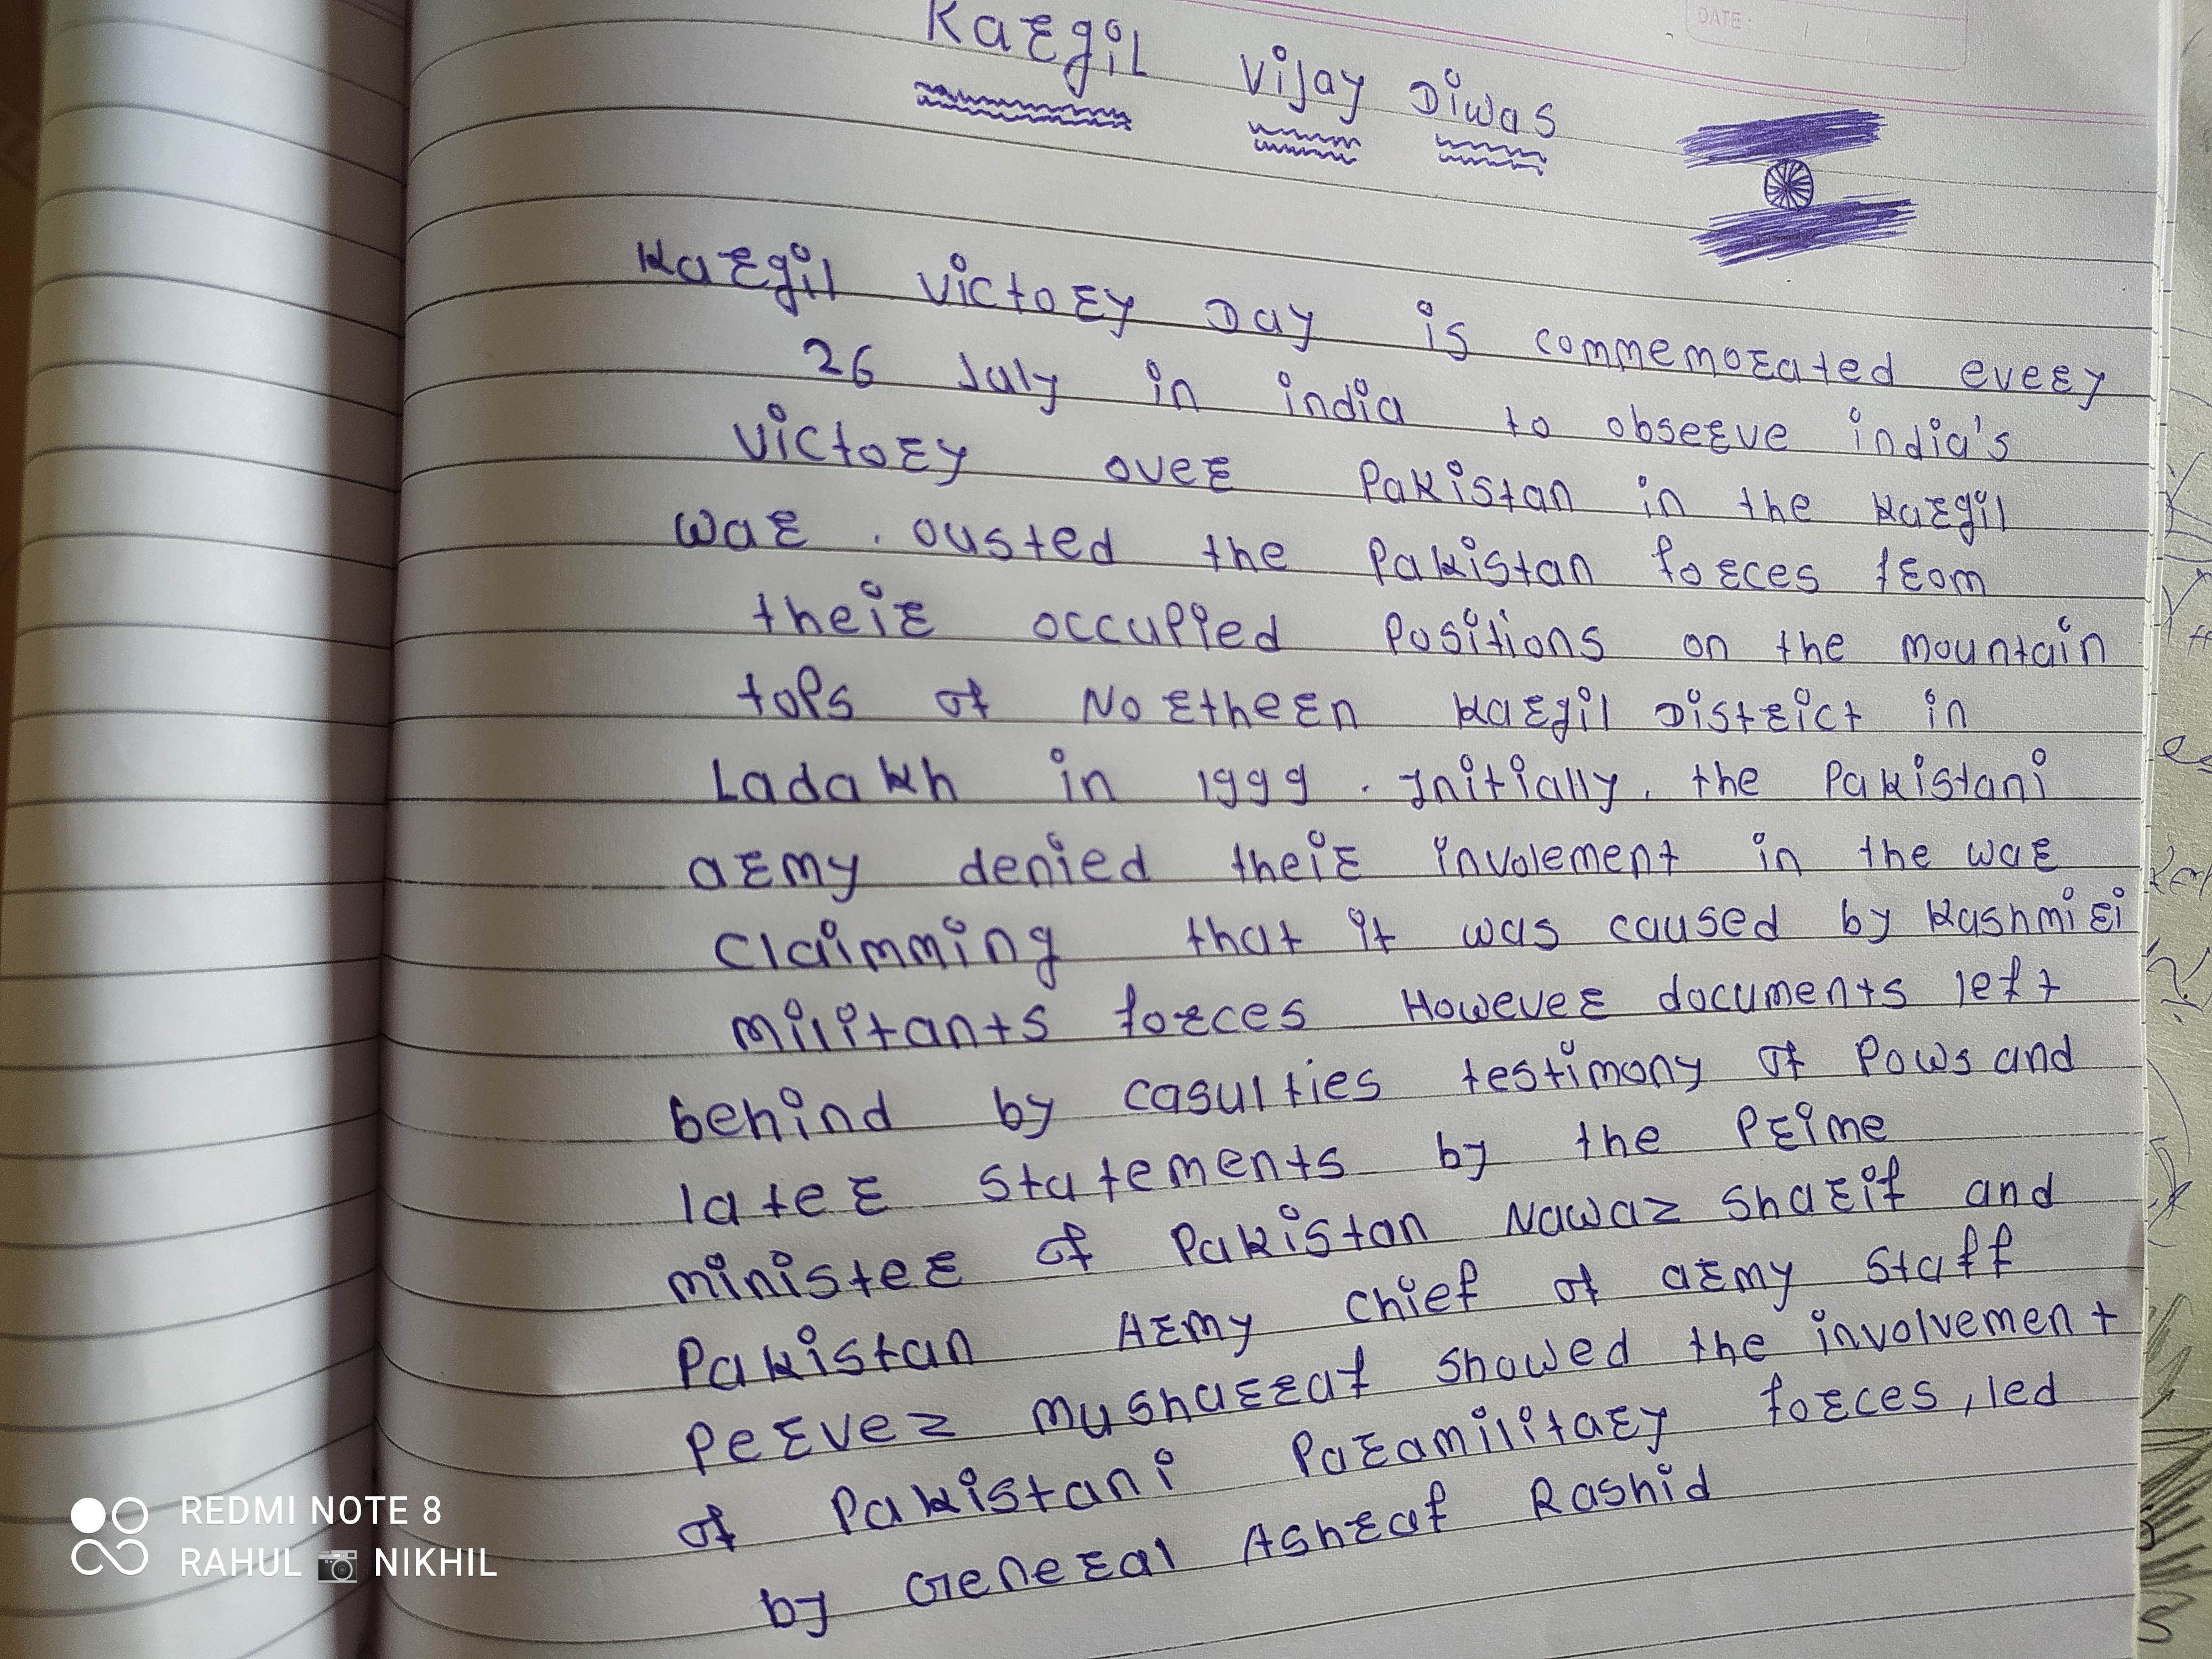 DATE:
Kargil Vijay Diwas
Kargil Victory Day is commemorated every
26 July in india to observe india's
victory over Pakistan in the Kargil
war . ousted the Pakistan forces from
their occupied Positions on the mountain
tops of Northern Kargil District in
Ladakh in 1999 . Initially, the Pakistani
army denied their involement in the war
claimming that it was caused by Kashmiri
militants forces However documents left
behind by casulties testimony of Pows and
later statements by the Prime
minister of Pakistan Nawaz Sharif and
Pakistan Army chief of army staff
Pervez Musharraf showed the involvement
of Pakistani Paramilitary forces, led
by General Ashraf Rashid
REDMI NOTE 8
RAHUL NIKHIL